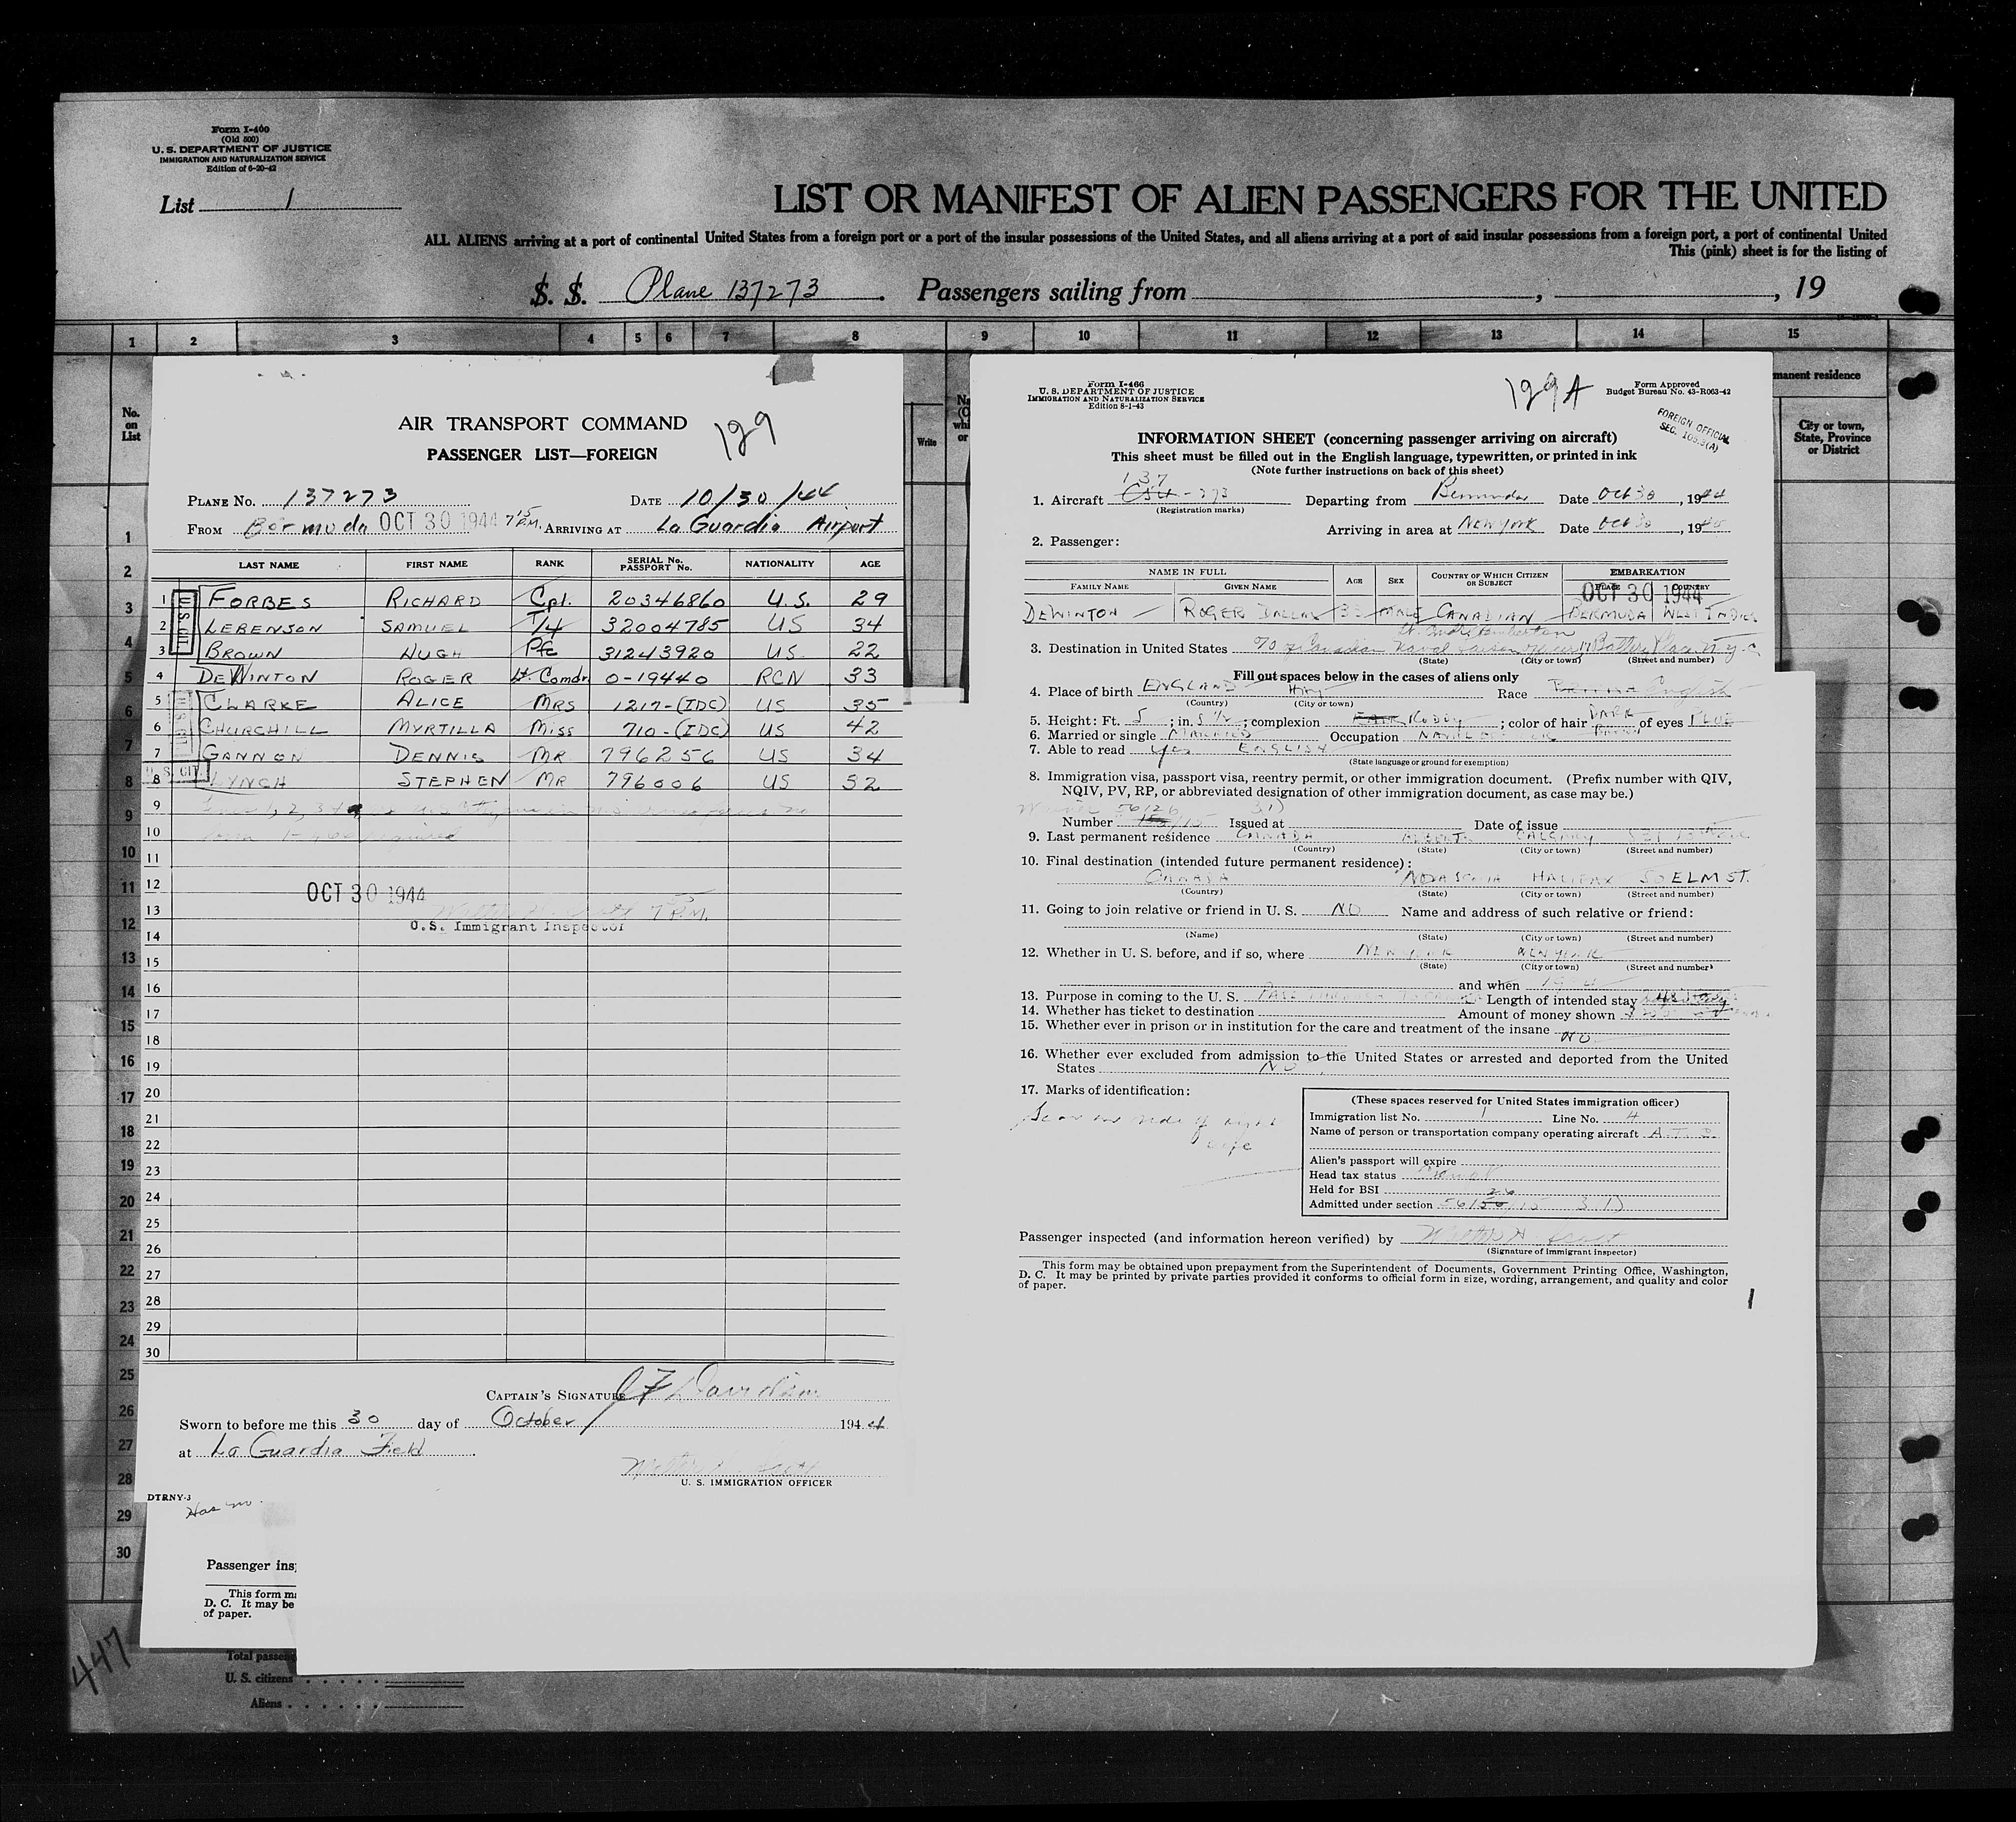 Form I-400
(Old 500)
U. S. DEPARTMENT OF JUSTICE
IMMIGRATION AND NATURALIZATION SERVICE
Edition of 6-20-42
List 1
LIST OR MANIFEST OF ALIEN PASSENGERS FOR THE UNITED
ALL ALIENS arriving at a port of continental United States from a foreign port or a port of the insular possessions of the United States, and all aliens arriving at a port of said insular possessions from a foreign port, a port of continental United
This (pink) sheet is for the listing of
S. S. Plane 137273 . Passengers sailing from , , 19
1 2 3 4 5 6 7 8 9 10 11 12 13 14 15
No. on List
Write
manent residence
City or town, State, Province or District
AIR TRANSPORT COMMAND
129
PASSENGER LIST—FOREIGN
PLANE No. 137273 DATE 10/30/44
FROM Bermuda OCT 30 1944 7 15 P.M. ARRIVING AT La Guardia Airport
LAST NAME FIRST NAME RANK SERIAL No. PASSPORT No. NATIONALITY AGE
1 FORBES RICHARD Cpl. 20346860 U.S. 29
2 LEBENSON SAMUEL T/4 32004785 US 34
3 BROWN HUGH Pfc 31243920 US 22
4 DEWINTON ROGER Lt. Comdr. 0-19440 RCN 33
5 CLARKE ALICE MRS 1217-(IDC) US 35
6 CHURCHILL MYRTILLA MISS 710-(IDC) US 42
7 GANNON DENNIS MR 796256 US 34
8 LYNCH STEPHEN MR 796006 US 52
U. S. CIT.
9
10
11
12 OCT 30 1944
13 7 P.M.
U.S. Immigrant Inspector
14
15
16
17
18
19
20
21
22
23
24
25
26
27
28
29
30
CAPTAIN'S SIGNATURE Davidson
Sworn to before me this 30 day of October 1944
at La Guardia Field
U. S. IMMIGRATION OFFICER
DTRNY-3
Has no
Passenger ins
This form ma
D. C. It may be
of paper.
Total passen
U. S. citizens
Aliens
447
Form I-466
U. S. DEPARTMENT OF JUSTICE
IMMIGRATION AND NATURALIZATION SERVICE
Edition 8-1-43
129A
Form Approved
Budget Bureau No. 43-R063-42
FOREIGN OFFICIAL
SEC. 105.3(A)
INFORMATION SHEET (concerning passenger arriving on aircraft)
This sheet must be filled out in the English language, typewritten, or printed in ink
(Note further instructions on back of this sheet)
1. Aircraft 137 -273 Departing from Bermuda Date Oct 30, 1944
(Registration marks)
Arriving in area at New York Date Oct 30, 19
2. Passenger:
NAME IN FULL AGE SEX COUNTRY OF WHICH CITIZEN OR SUBJECT EMBARKATION
FAMILY NAME GIVEN NAME PLACE COUNTRY
OCT 30 1944
DEWINTON ROGER DALLAS 33 MALE CANADIAN BERMUDA WEST INDIES
3. Destination in United States c/o Canadian Naval Liaison Officer, 17 Battery Place, N.Y.C.
(State) (City or town) (Street and number)
Fill out spaces below in the cases of aliens only
4. Place of birth ENGLAND Race English
(Country) (City or town)
5. Height: Ft. 5; in. 8 1/2; complexion Ruddy; color of hair DARK BROWN of eyes BLUE
6. Married or single MARRIED Occupation NAVAL OFFICER
7. Able to read yes ENGLISH
(State language or ground for exemption)
8. Immigration visa, passport visa, reentry permit, or other immigration document. (Prefix number with QIV,
NQIV, PV, RP, or abbreviated designation of other immigration document, as case may be.)
Number Issued at Date of issue
9. Last permanent residence CANADA ALBERTA CALGARY
(Country) (State) (City or town) (Street and number)
10. Final destination (intended future permanent residence):
CANADA NOVA SCOTIA HALIFAX 50 ELM ST.
(Country) (State) (City or town) (Street and number)
11. Going to join relative or friend in U. S. NO Name and address of such relative or friend:
(Name) (State) (City or town) (Street and number)
12. Whether in U. S. before, and if so, where NEW YORK NEW YORK
(State) (City or town) (Street and number)
and when
13. Purpose in coming to the U. S. Length of intended stay
14. Whether has ticket to destination Amount of money shown
15. Whether ever in prison or in institution for the care and treatment of the insane
NO
16. Whether ever excluded from admission to the United States or arrested and deported from the United
States NO
17. Marks of identification:
Scar on side of right eye
(These spaces reserved for United States immigration officer)
Immigration list No. 1 Line No. 4
Name of person or transportation company operating aircraft A.T.C.
Alien's passport will expire
Head tax status
Held for BSI
Admitted under section
Passenger inspected (and information hereon verified) by Walter H Scott
(Signature of immigrant inspector)
This form may be obtained upon prepayment from the Superintendent of Documents, Government Printing Office, Washington,
D. C. It may be printed by private parties provided it conforms to official form in size, wording, arrangement, and quality and color
of paper.